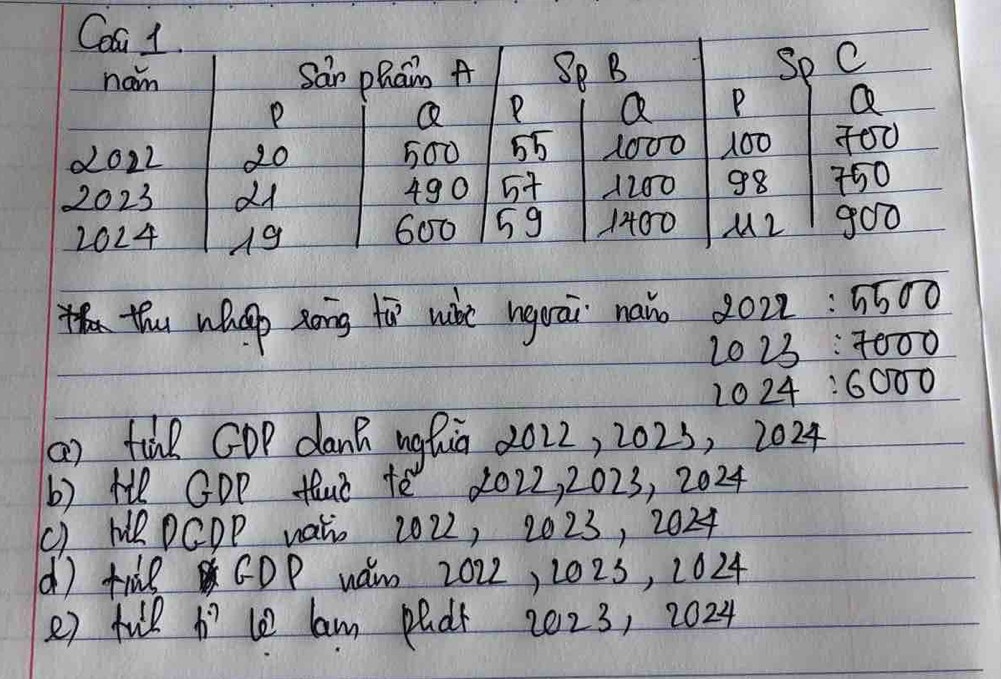 Câu 1.
năm Sản phẩm A Sp B Sp C
P Q P Q P Q
2022 20 500 55 1000 100 700
2023 21 490 57 1200 98 750
2024 19 600 59 1400 112 900
thu nhập ròng từ nước ngoài năm 2022 : 5500
2023 : 7000
2024 : 6000
a) tính GDP danh nghĩa 2022, 2023, 2024
b) tính GDP thực tế 2022, 2023, 2024
c) tính DGDP năm 2022, 2023, 2024
d) tính GDP năm 2022, 2023, 2024
e) tính tỉ lệ lạm phát 2023, 2024